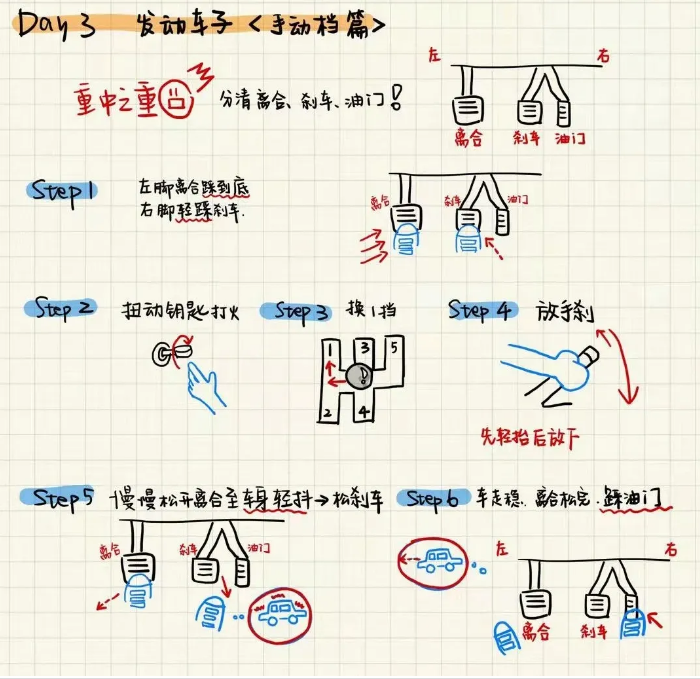 Day 3 发动车子 <手动档篇>
左 右
重中之重 分清离合、刹车、油门!
离合 刹车 油门
Step 1 左脚离合踩到底
右脚轻踩刹车.
离合 刹车 油门
Step 2 扭动钥匙打火 Step 3 换1挡 Step 4 放手刹
1 3 5
2 4
先轻抬后放下
Step 5 慢慢松开离合至车身轻抖→松刹车 Step 6 车走稳. 离合松完. 踩油门
离合 刹车 油门
左 右
离合 刹车